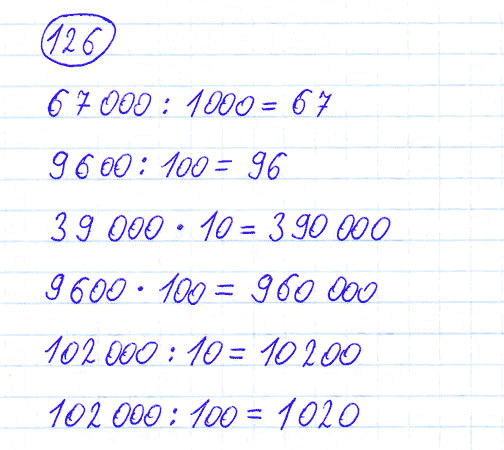 126
67 000 : 1000 = 67
9600 : 100 = 96
39 000 · 10 = 390 000
9600 · 100 = 960 000
102 000 : 10 = 10200
102 000 : 100 = 1020